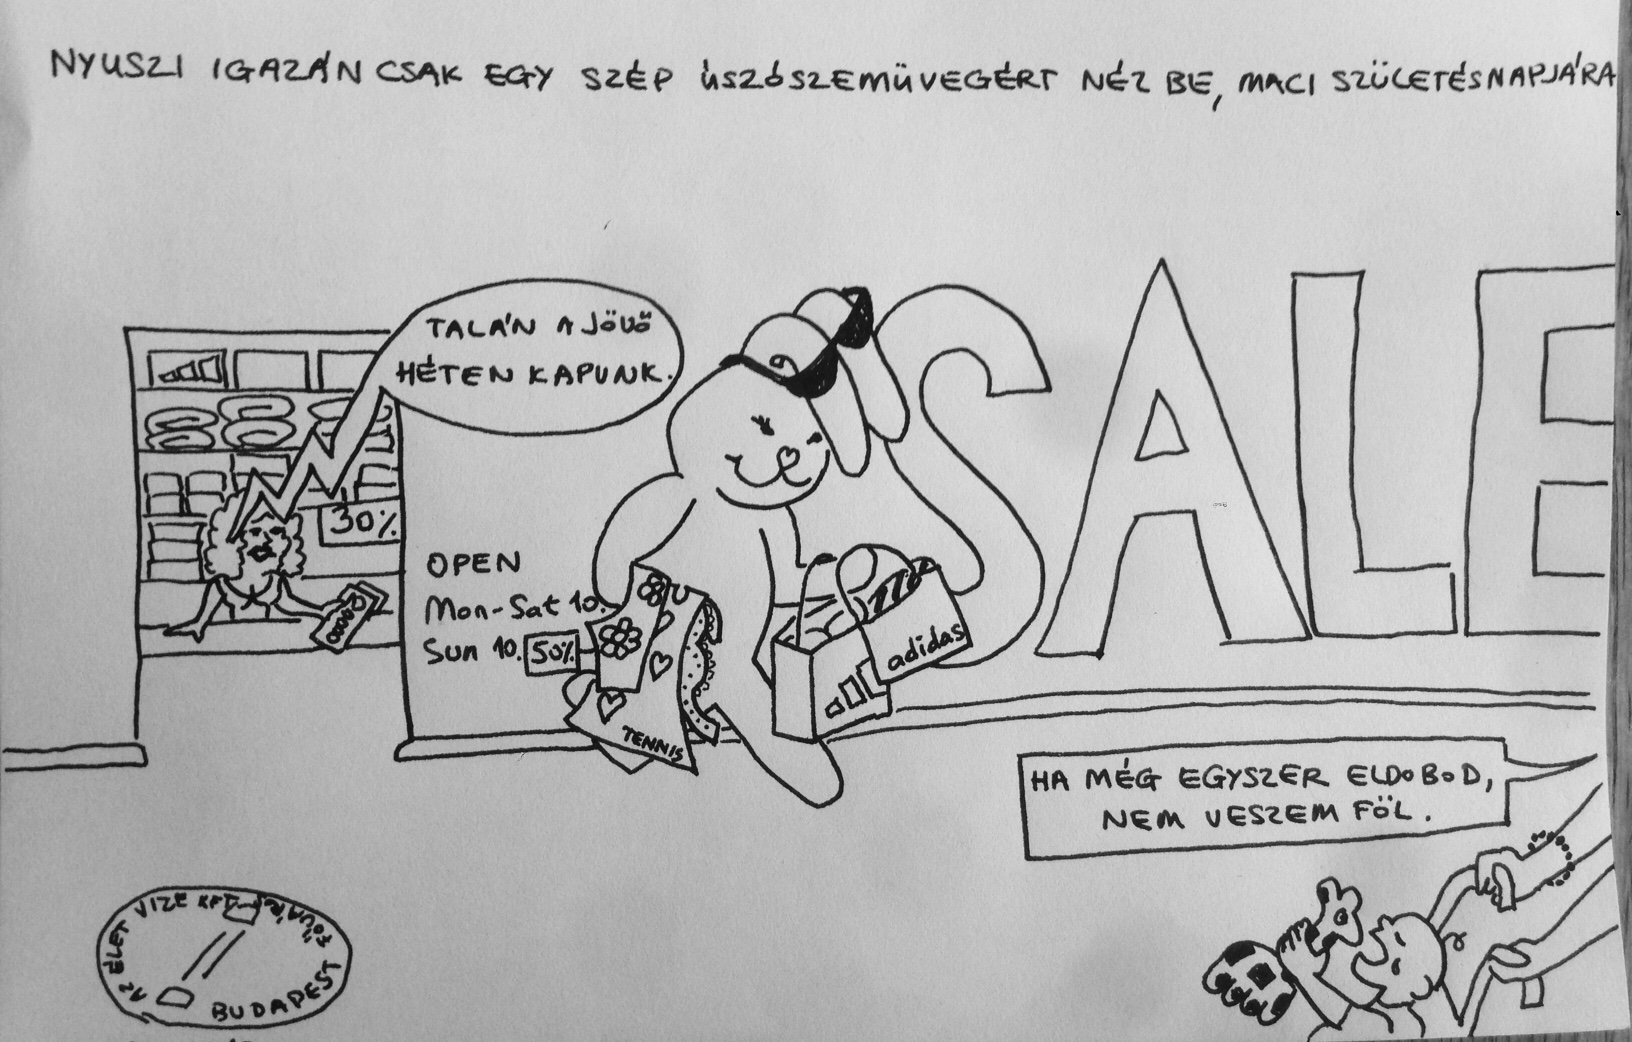 NYUSZI IGAZÁN CSAK EGY SZÉP ÚSZÓSZEMÜVEGÉRT NÉZ BE, MACI SZÜLETÉSNAPJÁRA
TALÁN A JÖVŐ
HÉTEN KAPUNK.
SALE
30%
OPEN
Mon-Sat 10.
Sun 10.
50%
TENNIS
adidas
HA MÉG EGYSZER ELDOBOD,
NEM VESZEM FÖL.
AZ ÉLET VIZE KFT.
FŐVÁROSI
BUDAPEST